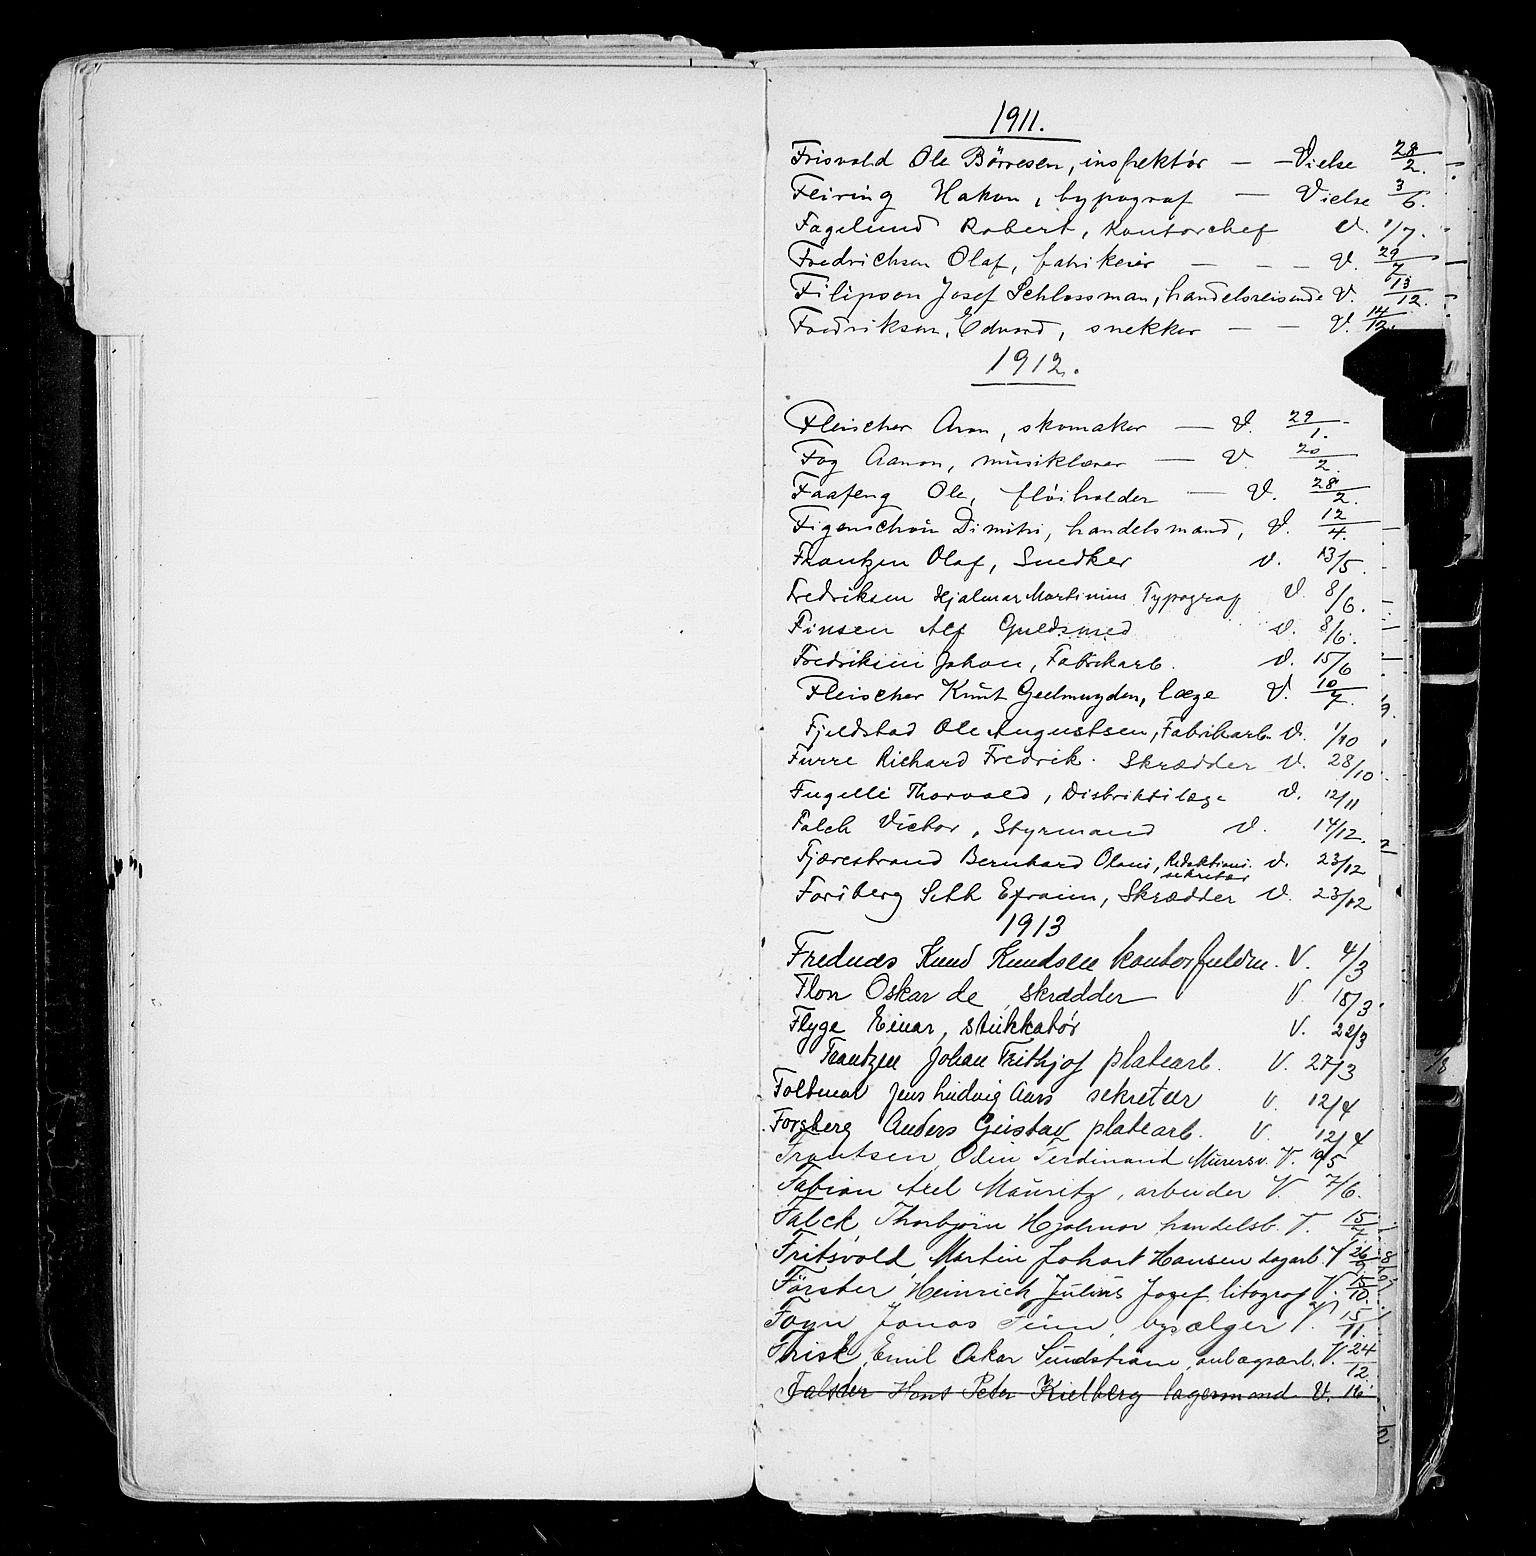 1911.
Frisvold Ole Börresen, inspektör — — Vielse 28/2.
Feiring Hakon, typograf — Vielse 3/6.
Fagelund Robert, kontorchef V. 1/7.
Fredrichsen Olaf, fabrikeier — — — V. 29/7
Filipson Josef Schlossman, handelsreisende V. 13/12.
Fredriksen, Edvard, snekker — — V. 14/12.
1912.
Fleischer Aron, skomaker — V. 29/1.
Fog Aanon, musiklærer — V. 20/2.
Faafeng Ole, fløiholder — V. 28/2.
Figenschou Dimitri, handelsmand, V. 12/4.
Frantzen Olaf, Snedker V. 13/5.
Fredriksen Hjalmar Martinius Typograf V. 8/6.
Finsen Alf Guldsmed V. 8/6.
Fredriksen Johan, Fabrikarb. V. 15/6
Fleischer Knut Geelmuyden, læge V. 10/7.
Fjeldstad Ole Augustsen, Fabrikarb. V. 1/10
Furre Richard Fredrik. Skrædder V. 28/10.
Fugelli Thorvald, Distriktslæge V. 12/11
Falch Victor, Styrmand V. 14/12.
Fjærestrand Bernhard Olaus, Redaktions. sekretær V. 23/12
Forsberg Seth Efraim, Skrædder V. 23/12
1913
Frednæs Knud Knudsen kontorfuldm. V. 4/3
Flon Oskar de, skrædder V. 18/3.
Flyge Einar, stukkatør V. 22/3
Frantzen Johan Frithjof platearb. V. 27/3
Foltmar Jens Ludvig Aars sekretær V. 12/4
Forsberg Anders Gustav platearb. V. 12/4
Frantsen, Odin Ferdinand Murersv. V. 19/5
Fabian Axel Mauritz, arbeider V. 7/6.
Falck, Thorbjörn Hjalmar handelsb. V. 15/7.
Fritsvold, Martin Johart Hansen dagarb. V 26/9
Förster, Heinrich Julius Josef, litograf V. 15/10.
Foyn Jonas Finn, bysælger V. 15/11.
Frisk, Emil Oskar Sundstrøm, anlægsarb. V. 24/12.
Falster Hans Peter Kielberg lagermand V. 16